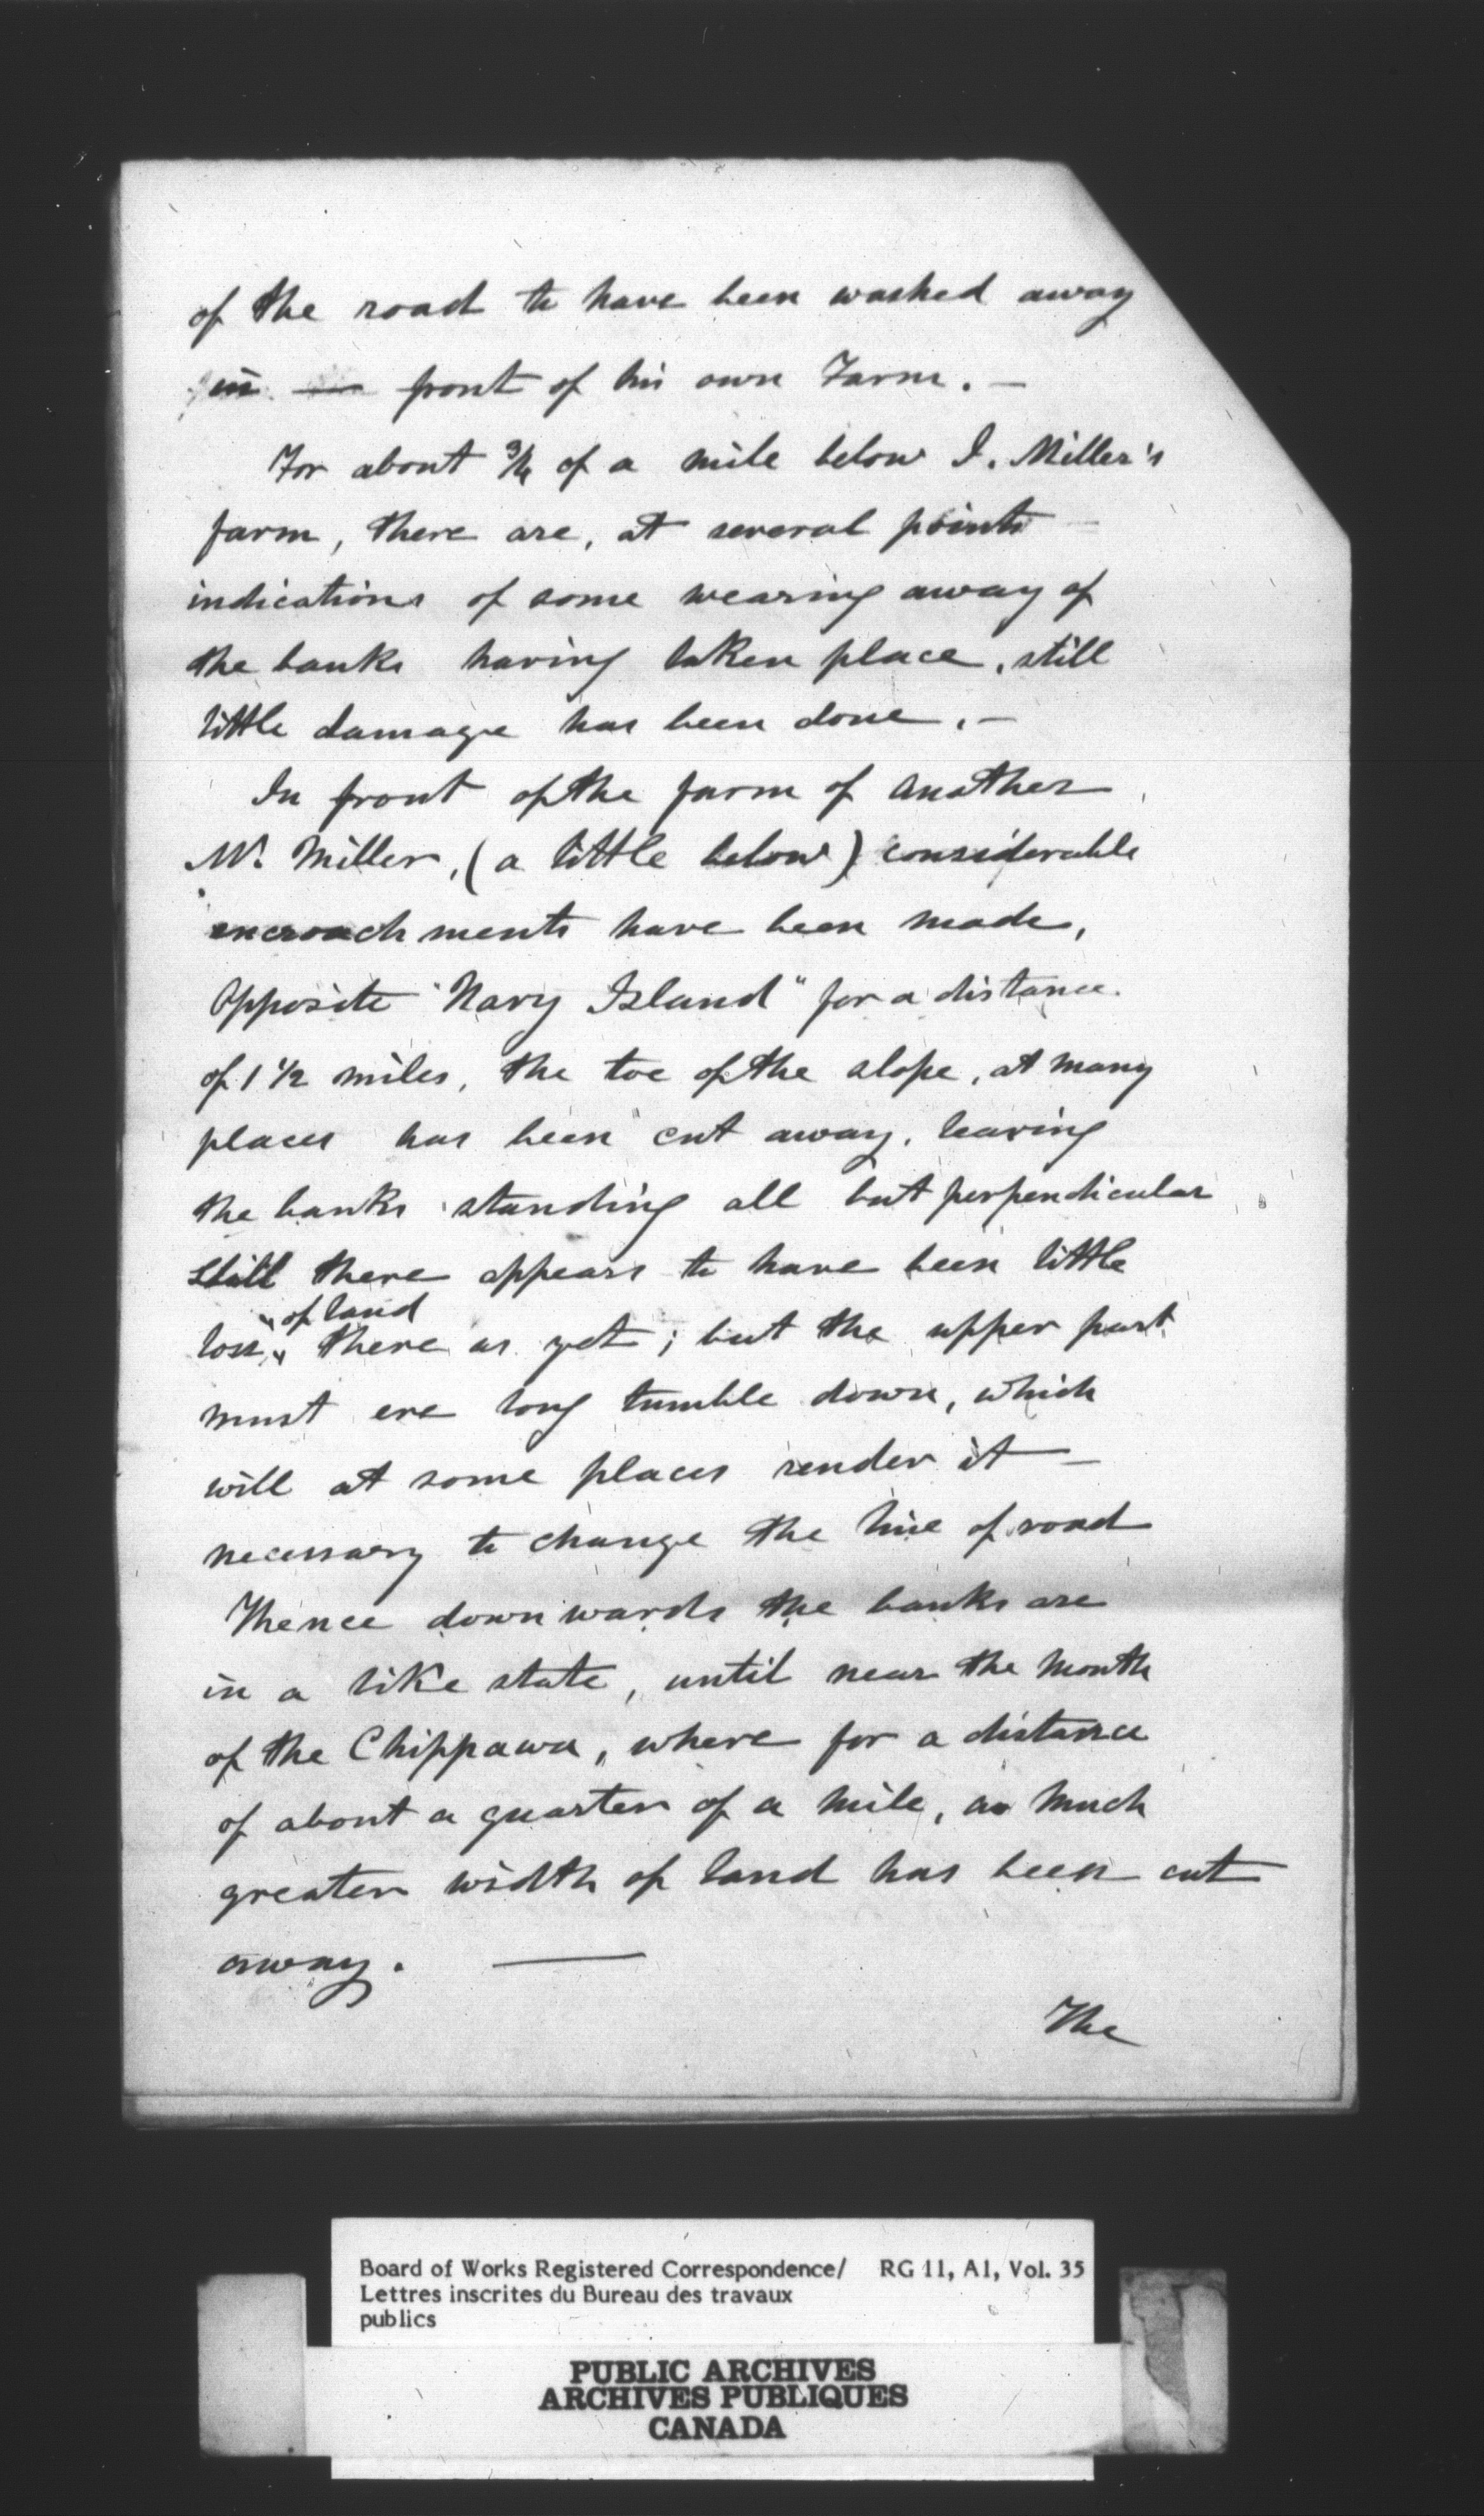 of the road to have been washed away
in — front of his own Farm. —
For about 3/4 of a mile below I. Miller's
farm, there are, at several points
indications of some wearing away of
the banks having taken place, still
little damage has been done. —
In front of the farm of another
Mr. Miller, (a little below) considerable
encroachments have been made,
Opposite "Navy Island" for a distance
of 1 1/2 miles, the toe of the slope, at many
places has been cut away, leaving
the banks standing all but perpendicular
Still there appears to have been little
of land
loss, there as yet; but the upper part
must ere long tumble down, which
will at some places render it —
necessary to change the line of road
Thence downwards the banks are
in a like state, until near the mouth
of the Chippawa, where for a distance
of about a quarter of a mile, a much
greater width of land has been cut
away. —
The
Board of Works Registered Correspondence/ RG 11, A1, Vol. 35
Lettres inscrites du Bureau des travaux
publics
PUBLIC ARCHIVES
ARCHIVES PUBLIQUES
CANADA